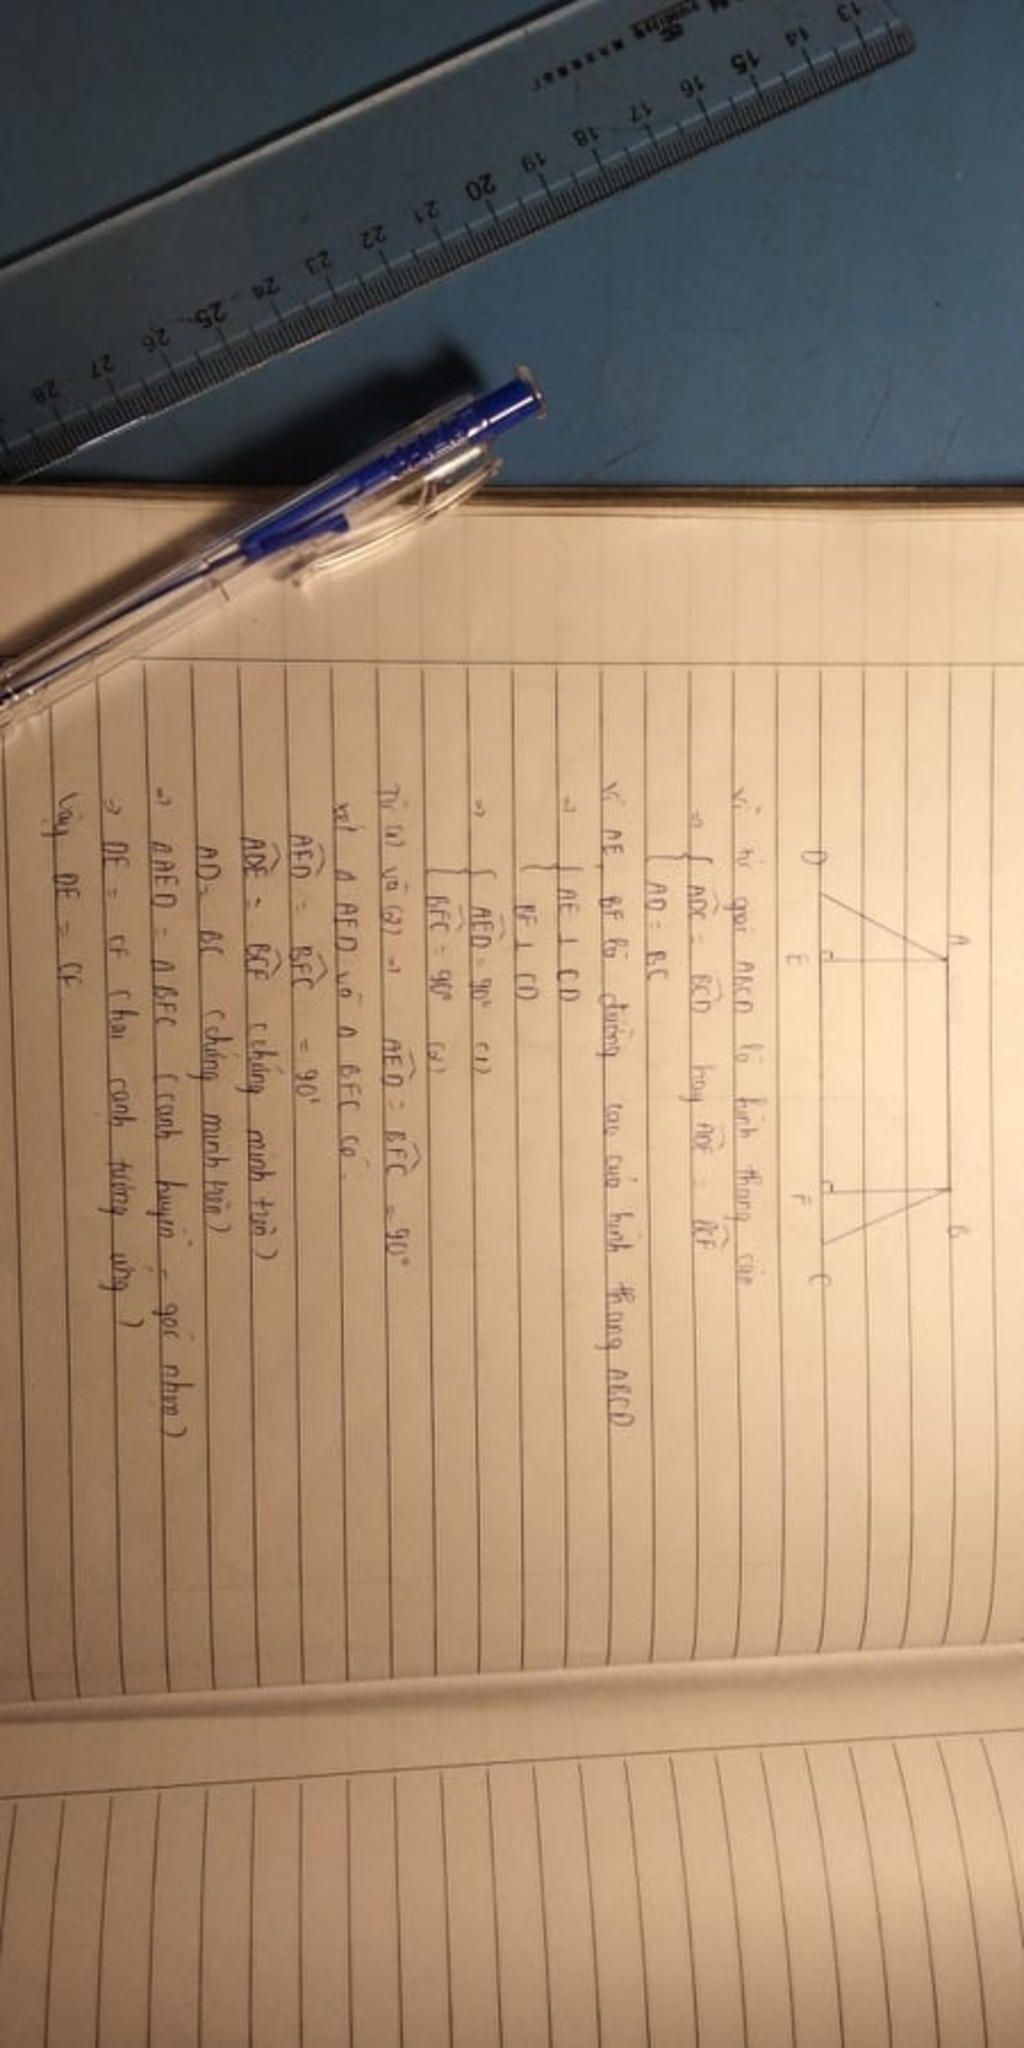 13 14 15 16 17 18 19 20 21 22 23 24 25 26 27 28
A B
D E F C
Vì tứ giác ABCD là hình thang cân
=> { ADC = BCD hay ADE = BCF
{ AD = BC
Vì AE, BF là đường cao của hình thang ABCD
=> { AE ⊥ CD
{ BF ⊥ CD
=> { AED = 90° (1)
{ BFC = 90° (2)
Từ (1) và (2) => AED = BFC = 90°
xét Δ AED và Δ BFC có:
AED = BFC = 90°
ADE = BCF (chứng minh trên)
AD = BC (chứng minh trên)
=> ΔAED = ΔBFC (cạnh huyền - góc nhọn)
=> DE = CF (hai cạnh tương ứng)
Vậy DE = CF